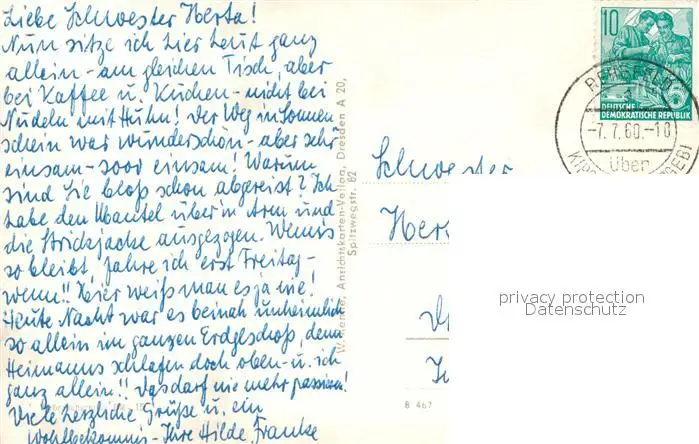 Liebe Schwester Herta!
Nun sitze ich hier heut ganz
allein - am gleichen Tisch, aber
bei Kaffee u. Kuchen - nicht bei
Nudeln mit Huhn! Der Weg in Sonnen
schein war wunderschön - aber sehr
einsam - sooo einsam! Warum
sind Sie bloß schon abgereist? Ich
habe den Mantel über'n Arm und
die Strickjacke ausgezogen. Wenn's
so bleibt, fahre ich erst Freitag -
wenn!! Hier weiß man es ja nie!
Heute Nacht war es beinah unheimlich
so allein im ganzen Erdgeschoß, denn
Heimanns schlafen doch oben - u. ich
ganz allein!! Das darf nie mehr passieren!
Viele herzliche Grüße u. ein
Wohlbekomm's - Ihre Hilde Franke
Ansichtskarten-Verlag, Dresden A 20,
Spitzwegstr. 82
10
DEUTSCHE
DEMOKRATISCHE REPUBLIK
-7.7.60.-10
über
Schwester
Herta
B 467
privacy protection
Datenschutz